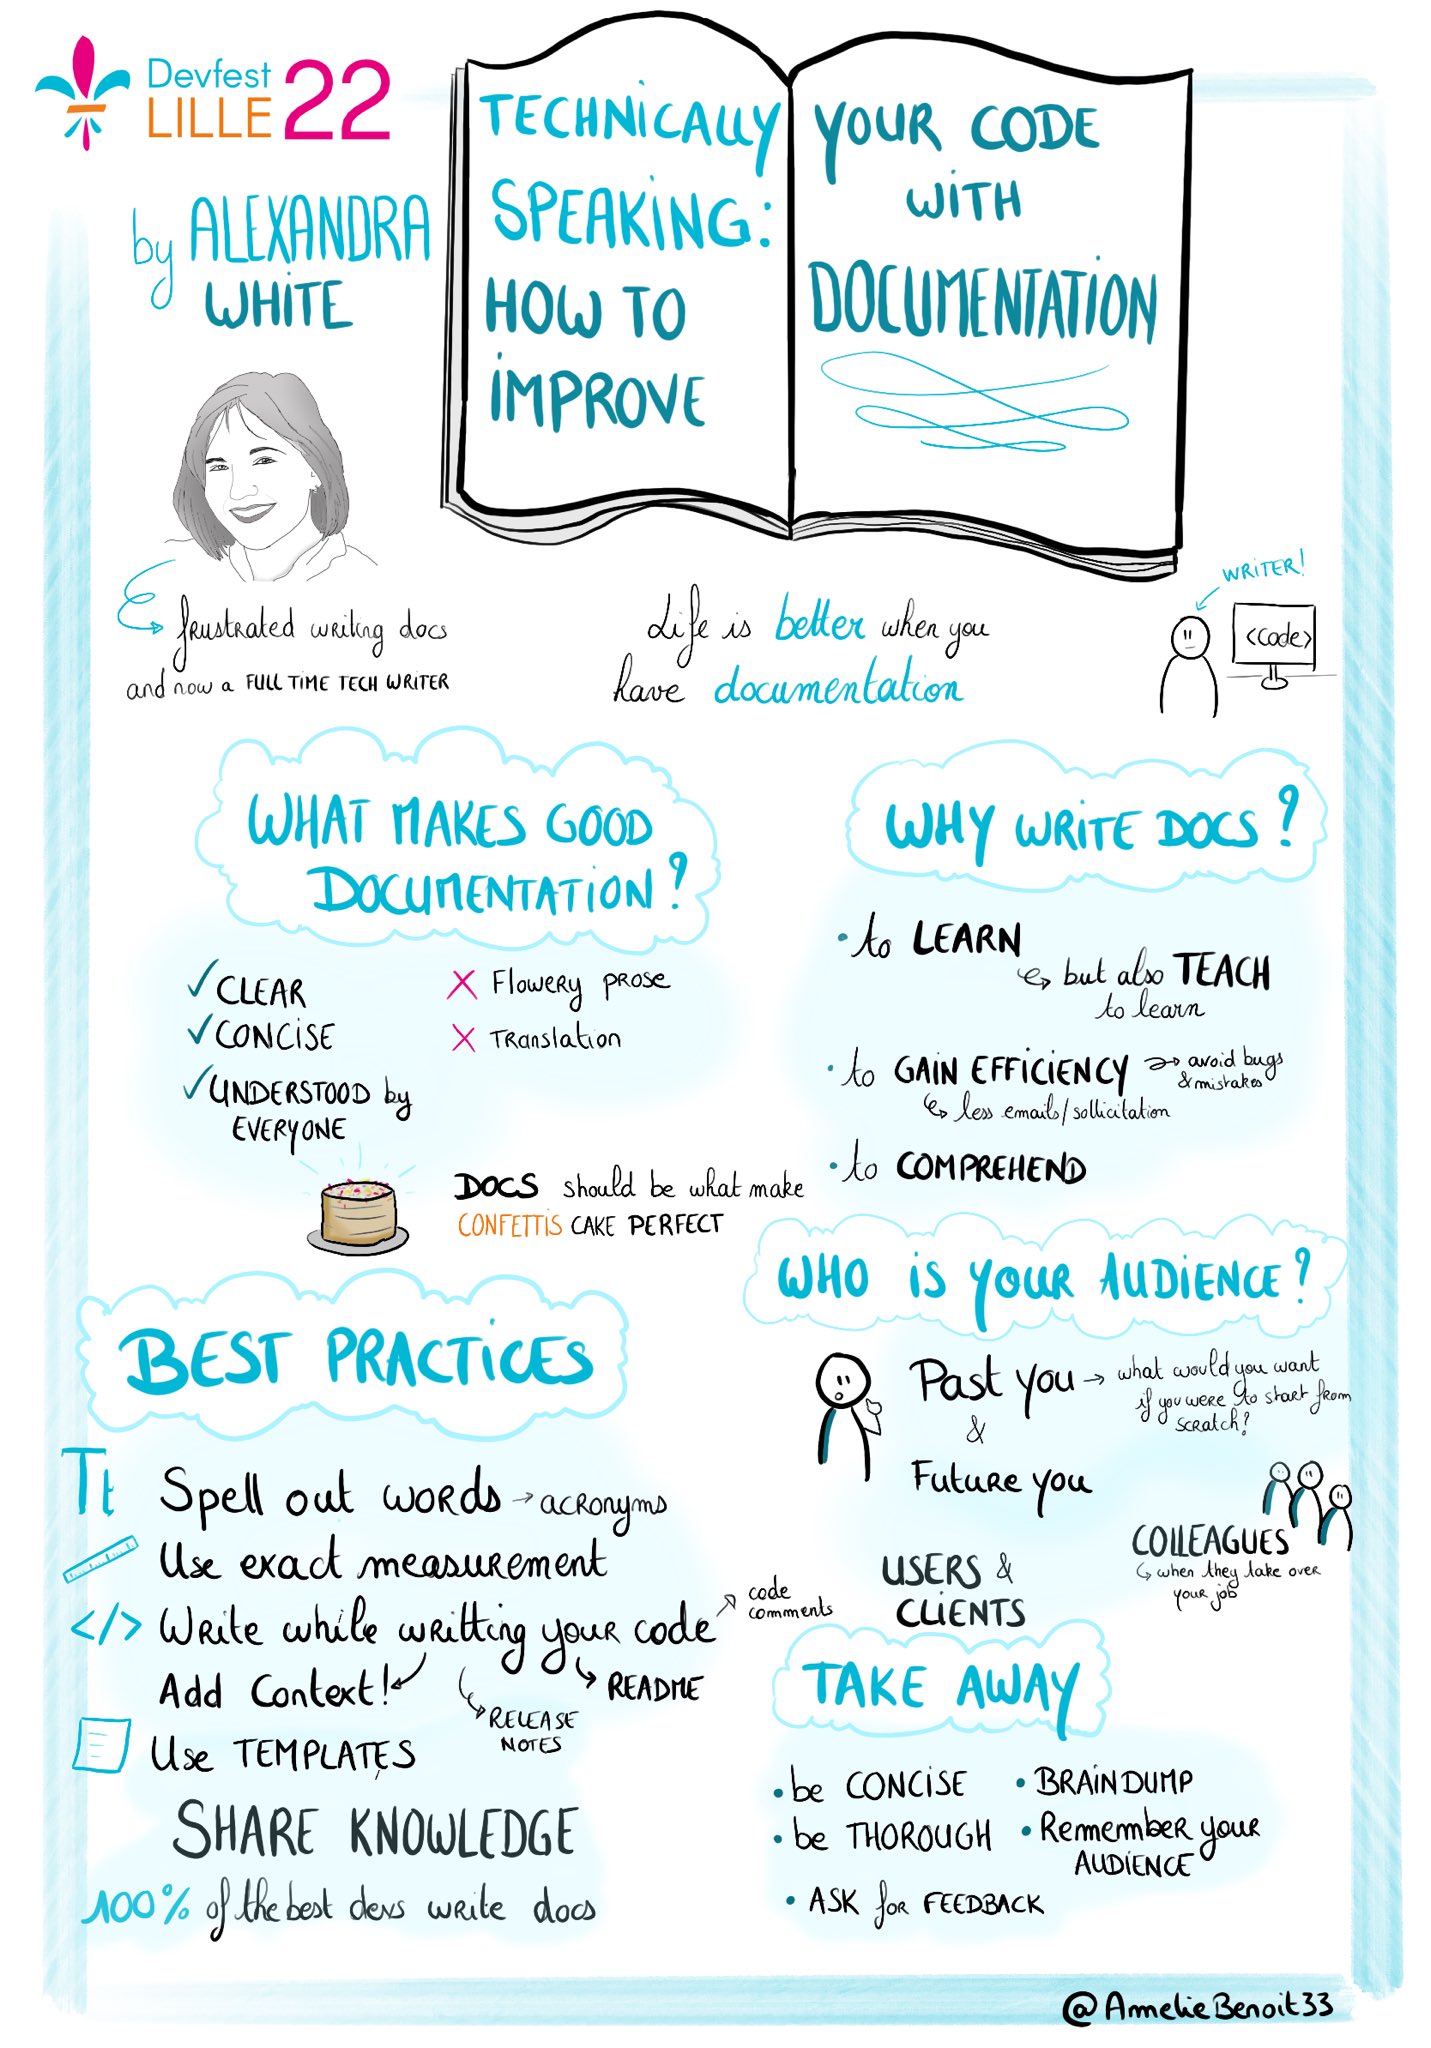 Devfest
LILLE 22
by ALEXANDRA
WHITE
TECHNICALLY
SPEAKING:
HOW TO
IMPROVE
YOUR CODE
WITH
DOCUMENTATION
frustrated writing docs
and now a FULL TIME TECH WRITER
Life is better when you
have documentation
WRITER!
<code>
WHAT MAKES GOOD
DOCUMENTATION?
✓ CLEAR
✓ CONCISE
✓ UNDERSTOOD by
EVERYONE
X Flowery prose
X Translation
DOCS should be what make
CONFETTIS CAKE PERFECT
WHY WRITE DOCS?
• to LEARN
but also TEACH
to learn
• to GAIN EFFICIENCY → avoid bugs
& mistakes
less emails/sollicitation
• to COMPREHEND
WHO IS YOUR AUDIENCE?
Past you → what would you want
if you were to start from
scratch?
&
Future you
COLLEAGUES
when they take over
your job
USERS &
CLIENTS
BEST PRACTICES
Tt Spell out words → acronyms
Use exact measurement
</> Write while writting your code
code
comments
Add Context!
README
RELEASE
NOTES
Use TEMPLATES
SHARE KNOWLEDGE
100% of the best devs write docs
TAKE AWAY
• be CONCISE
• be THOROUGH
• ASK for FEEDBACK
• BRAIN DUMP
• Remember your
AUDIENCE
@AmelieBenoit33